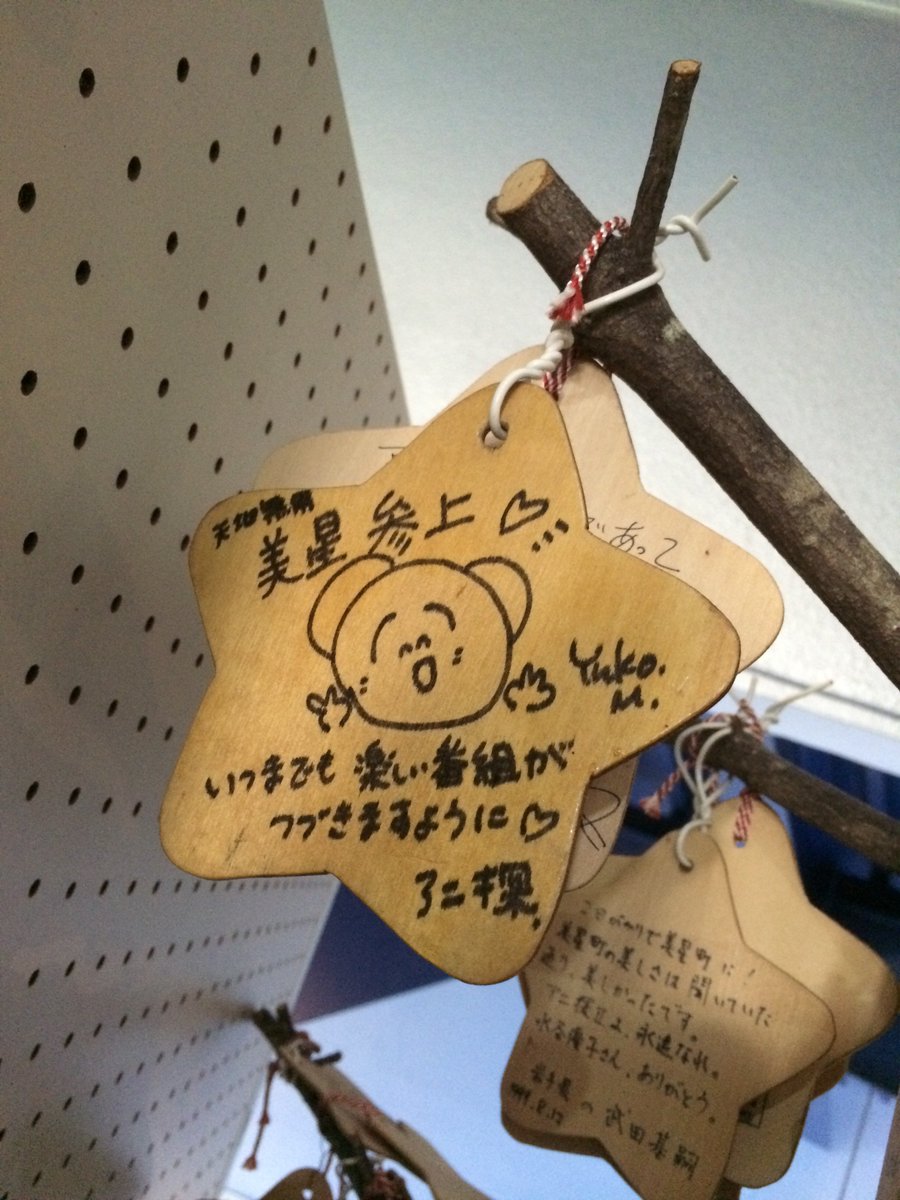 天地無用
美星 参上♡...
Yuko.
M.
いつまでも 楽しい番組が
つづきますように♡
アニ探.
であって
2日がかりで美星町に!
美星町の美しさは聞いていた
通り、美しかったです。
アニ探Ⅱよ、永遠なれ。
水谷優子さん、ありがとう。
岩手県の 武田基嗣
8.12